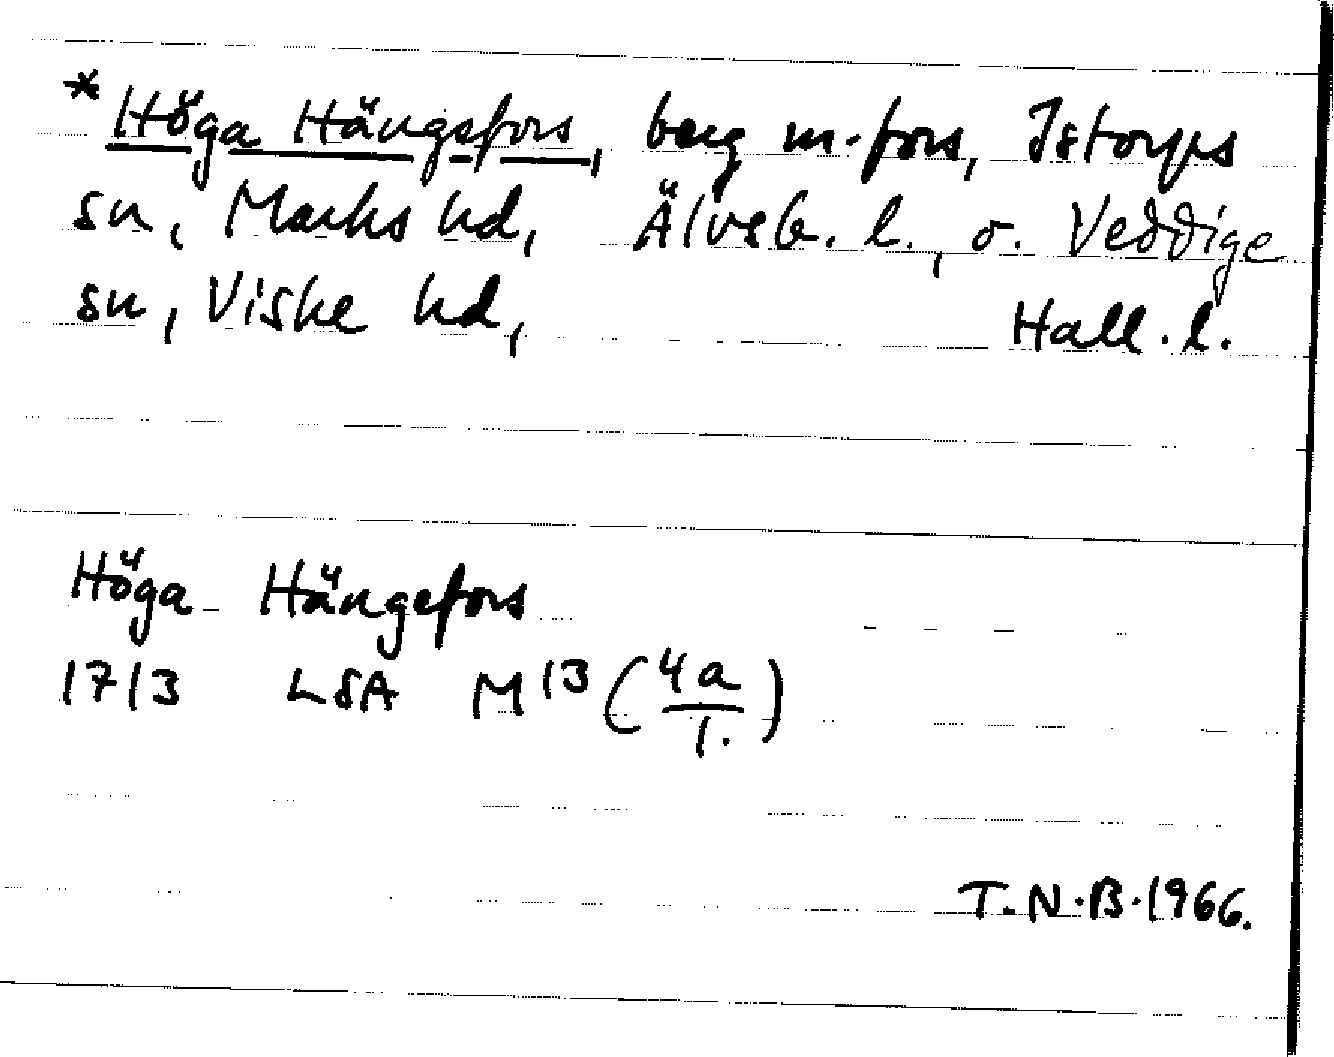 *Höga Hängsfors, berg m. fors, Istorps
sn, Marks hd, Älvsb. l., o. Veddige
sn, Viske hd, Hall. l.
Höga Hängefors
1713 LSA M13 (4a/1.)
T.N.B. 1966.